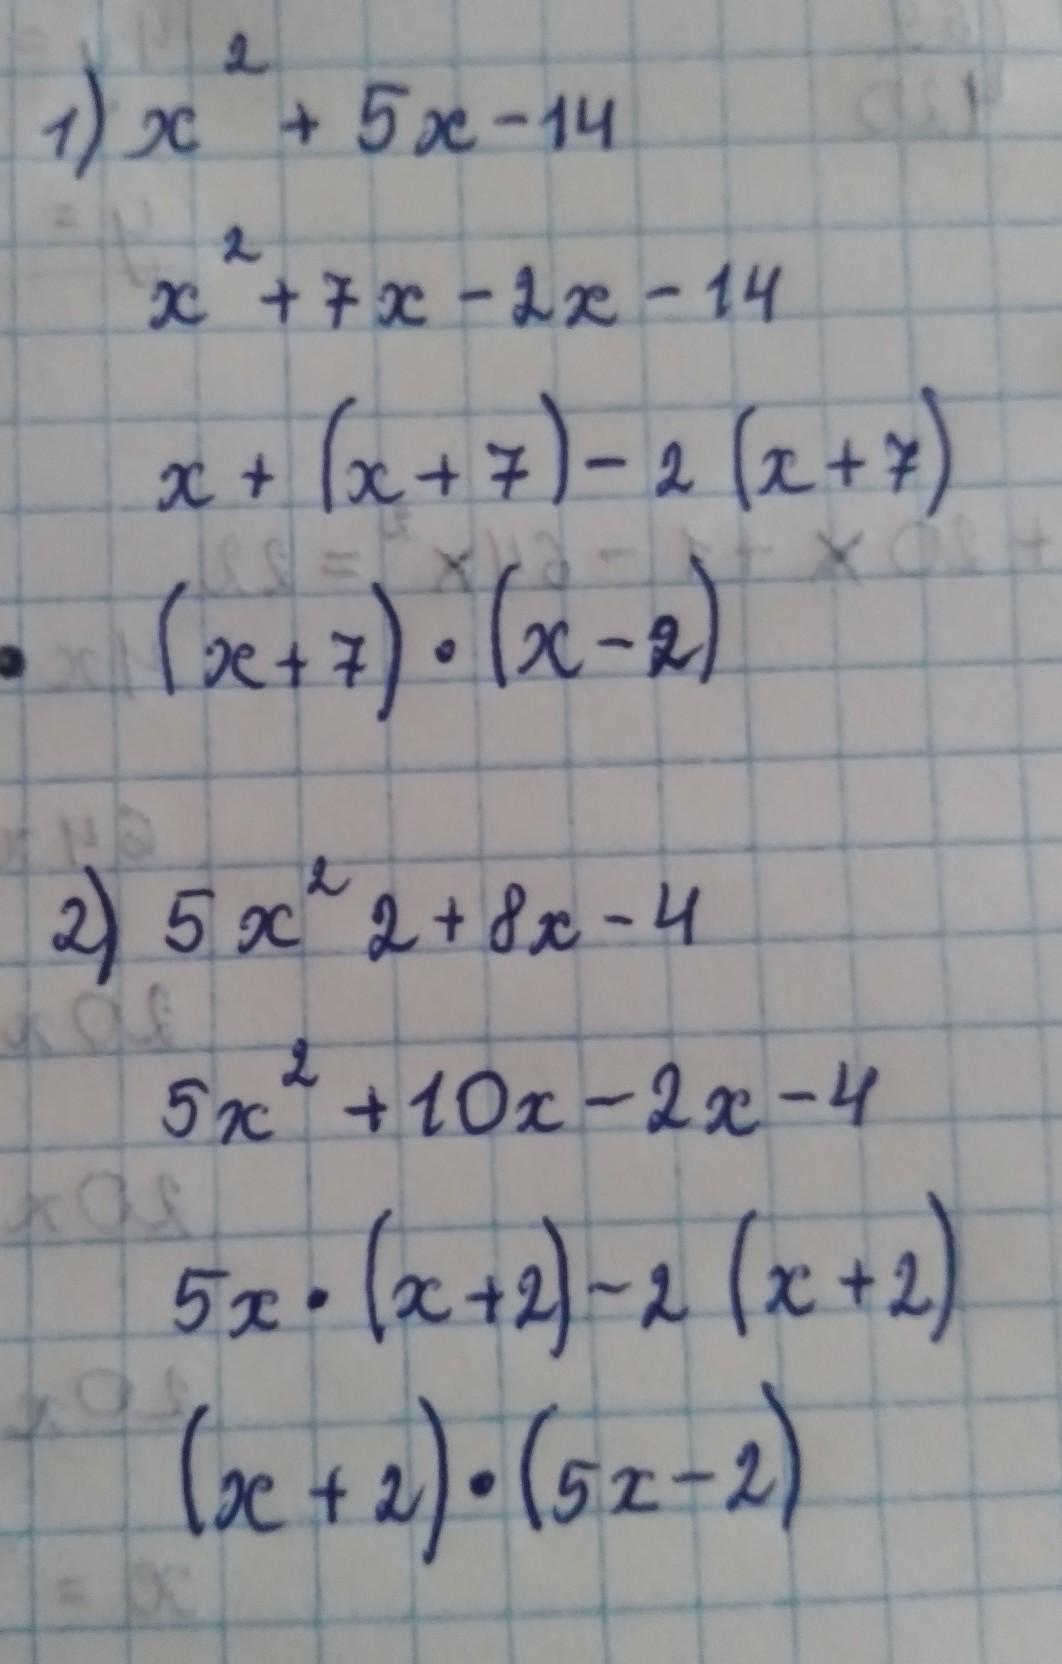 1) x² + 5x - 14
x² + 7x - 2x - 14
x + (x + 7) - 2 (x + 7)
(x + 7) • (x - 2)
2) 5x² 2 + 8x - 4
5x² + 10x - 2x - 4
5x • (x + 2) - 2 (x + 2)
(x + 2) • (5x - 2)